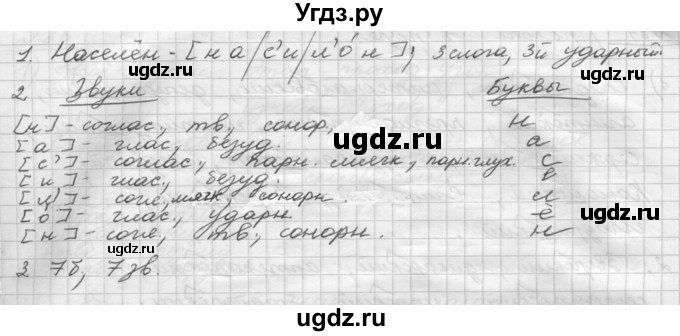 Угдз.ру
1. Населён - [н а/с'и/л'о́ н]; 3 слога, 3й ударный
2 Звуки Буквы
[н] - соглас., тв, сонор, н
[а] - глас, безуд. а
[с'] - соглас., парн. мягк., парн. глух. с
[и] - глас., безуд. е
[л'] - согл, мягк, сонорн. л
[о́] - глас., ударн. ё
[н] - согл, тв, сонорн. н
3 7б, 7зв.
ugdz.ru
ugdz.ru
ugdz.ru
ugdz.ru
ugdz.ru
ugdz.ru
ugdz.ru
ugdz.ru